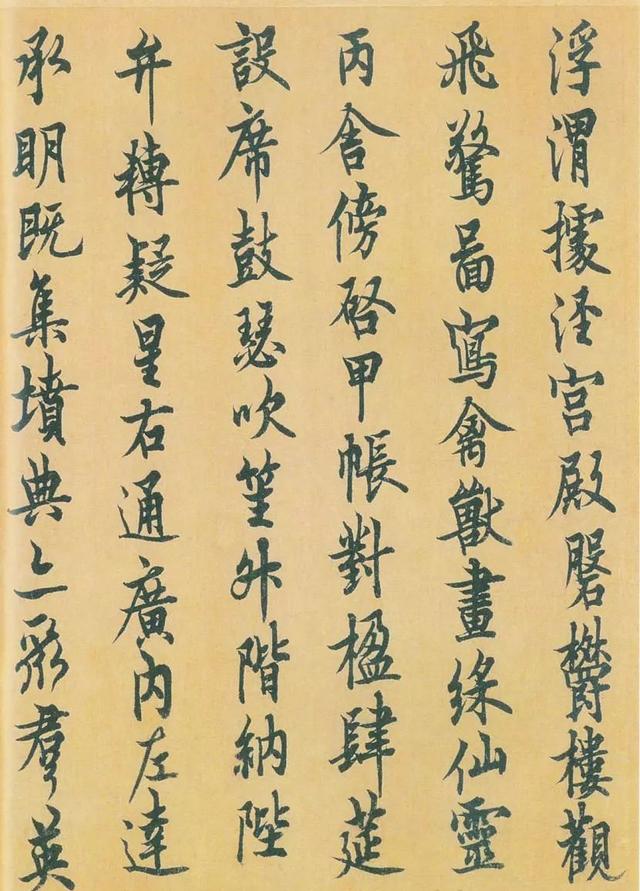 浮渭據涇宮殿磐鬱樓觀
飛驚圖寫禽獸畫綵仙靈
丙舍傍啓甲帳對楹肆筵
設席鼓瑟吹笙升階納陛
弁轉疑星右通廣內左達
承明既集墳典亦聚羣英